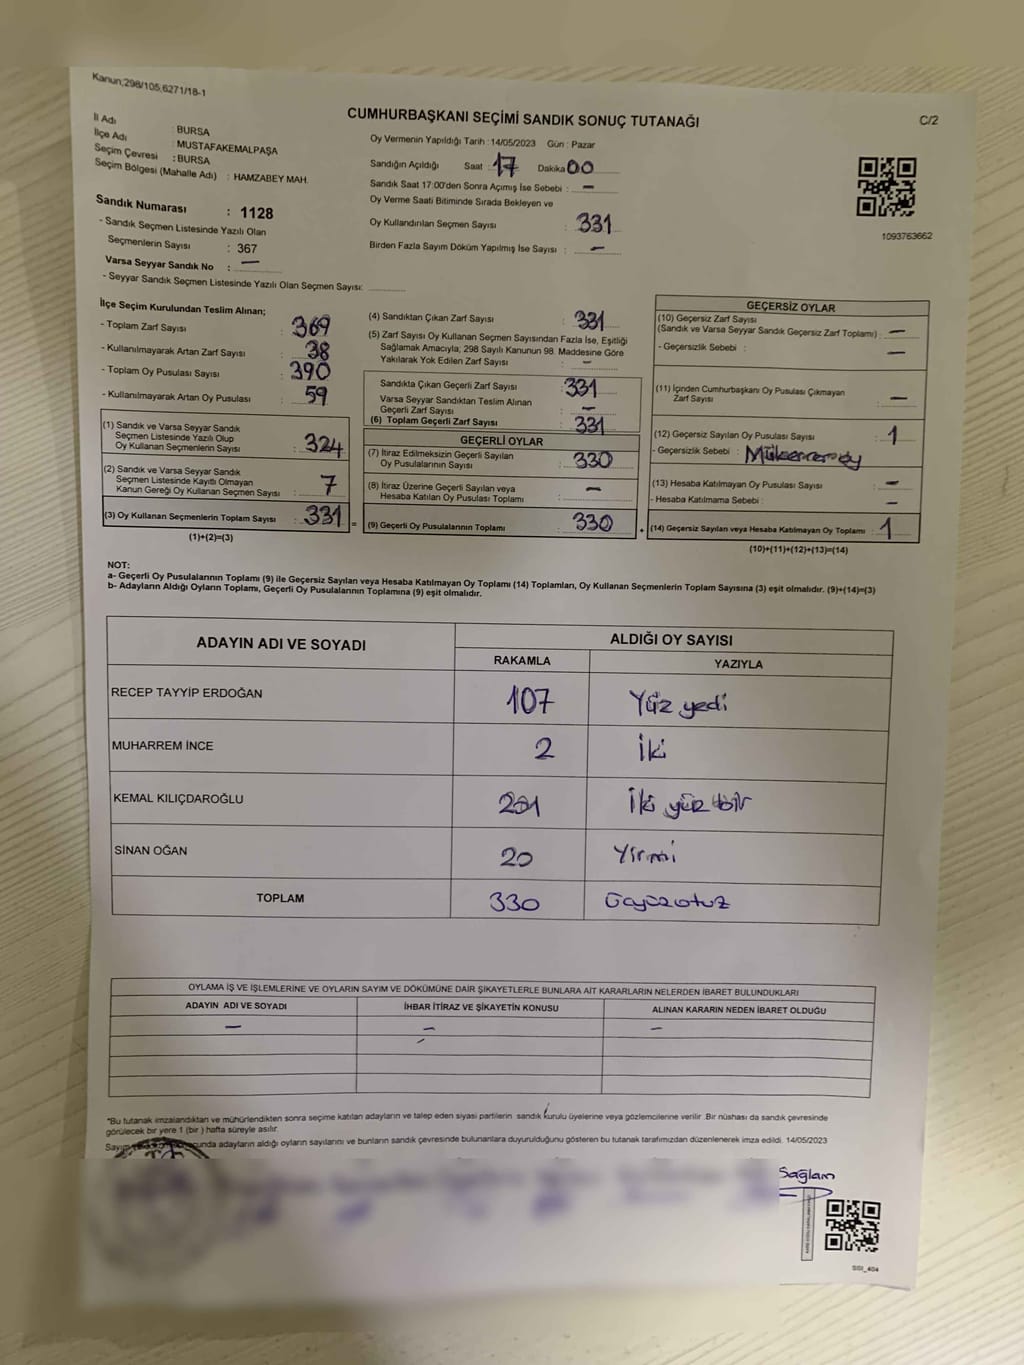 Kanun;298/105,6271/18-1
CUMHURBAŞKANI SEÇİMİ SANDIK SONUÇ TUTANAĞI
C/2
İl Adı : BURSA
İlçe Adı : MUSTAFAKEMALPAŞA
Seçim Çevresi : BURSA
Seçim Bölgesi (Mahalle Adı) : HAMZABEY MAH.
Sandık Numarası : 1128
- Sandık Seçmen Listesinde Yazılı Olan
Seçmenlerin Sayısı : 367
Varsa Seyyar Sandık No : —
- Seyyar Sandık Seçmen Listesinde Yazılı Olan Seçmen Sayısı:
Oy Vermenin Yapıldığı Tarih : 14/05/2023 Gün : Pazar
Sandığın Açıldığı Saat : 17 Dakika 00
Sandık Saat 17:00'den Sonra Açımış İse Sebebi : —
Oy Verme Saati Bitiminde Sırada Bekleyen ve
Oy Kullandırılan Seçmen Sayısı : 331
Birden Fazla Sayım Döküm Yapılmış İse Sayısı : —
1093763662
İlçe Seçim Kurulundan Teslim Alınan;
- Toplam Zarf Sayısı : 369
- Kullanılmayarak Artan Zarf Sayısı : 38
- Toplam Oy Pusulası Sayısı : 390
- Kullanılmayarak Artan Oy Pusulası : 59
(1) Sandık ve Varsa Seyyar Sandık
Seçmen Listesinde Yazılı Olup
Oy Kullanan Seçmenlerin Sayısı : 324
(2) Sandık ve Varsa Seyyar Sandık
Seçmen Listesinde Kayıtlı Olmayan
Kanun Gereği Oy Kullanan Seçmen Sayısı : 7
(3) Oy Kullanan Seçmenlerin Toplam Sayısı : 331
(1)+(2)=(3)
(4) Sandıktan Çıkan Zarf Sayısı : 331
(5) Zarf Sayısı Oy Kullanan Seçmen Sayısından Fazla İse, Eşitliği
Sağlamak Amacıyla; 298 Sayılı Kanunun 98. Maddesine Göre
Yakılarak Yok Edilen Zarf Sayısı : —
Sandıkta Çıkan Geçerli Zarf Sayısı : 331
Varsa Seyyar Sandıktan Teslim Alınan
Geçerli Zarf Sayısı : —
(6) Toplam Geçerli Zarf Sayısı : 331
GEÇERLİ OYLAR
(7) İtiraz Edilmeksizin Geçerli Sayılan
Oy Pusulalarının Sayısı : 330
(8) İtiraz Üzerine Geçerli Sayılan veya
Hesaba Katılan Oy Pusulası Toplamı : —
= (9) Geçerli Oy Pusulalarının Toplamı : 330 +
GEÇERSİZ OYLAR
(10) Geçersiz Zarf Sayısı
(Sandık ve Varsa Seyyar Sandık Geçersiz Zarf Toplamı) : —
- Geçersizlik Sebebi : —
(11) İçinden Cumhurbaşkanı Oy Pusulası Çıkmayan
Zarf Sayısı : —
(12) Geçersiz Sayılan Oy Pusulası Sayısı : 1
- Geçersizlik Sebebi : Mükerrer oy
(13) Hesaba Katılmayan Oy Pusulası Sayısı : —
- Hesaba Katılmama Sebebi : —
(14) Geçersiz Sayılan veya Hesaba Katılmayan Oy Toplamı : 1
(10)+(11)+(12)+(13)=(14)
NOT:
a- Geçerli Oy Pusulalarının Toplamı (9) ile Geçersiz Sayılan veya Hesaba Katılmayan Oy Toplamı (14) Toplamları, Oy Kullanan Seçmenlerin Toplam Sayısına (3) eşit olmalıdır. (9)+(14)=(3)
b- Adayların Aldığı Oyların Toplamı, Geçerli Oy Pusulalarının Toplamına (9) eşit olmalıdır.
ADAYIN ADI VE SOYADI ALDIĞI OY SAYISI
RAKAMLA YAZIYLA
RECEP TAYYİP ERDOĞAN 107 Yüz yedi
MUHARREM İNCE 2 İki
KEMAL KILIÇDAROĞLU 201 İki yüz bir
SİNAN OĞAN 20 Yirmi
TOPLAM 330 Üçyüzotuz
OYLAMA İŞ VE İŞLEMLERİNE VE OYLARIN SAYIM VE DÖKÜMÜNE DAİR ŞİKAYETLERLE BUNLARA AİT KARARLARIN NELERDEN İBARET BULUNDUKLARI
ADAYIN ADI VE SOYADI İHBAR İTİRAZ VE ŞİKAYETİN KONUSU ALINAN KARARIN NEDEN İBARET OLDUĞU
— — —
*Bu tutanak imzalandıktan ve mühürlendikten sonra seçime katılan adayların ve talep eden siyasi partilerin sandık kurulu üyelerine veya gözlemcilerine verilir .Bir nüshası da sandık çevresinde
görülecek bir yere 1 (bir ) hafta süreyle asılır.
Sayım adayların aldığı oyların sayılarını ve bunların sandık çevresinde bulunanlara duyurulduğunu gösteren bu tutanak tarafımızdan düzenlenerek imza edildi. 14/05/2023
Sağlam
SSI_404